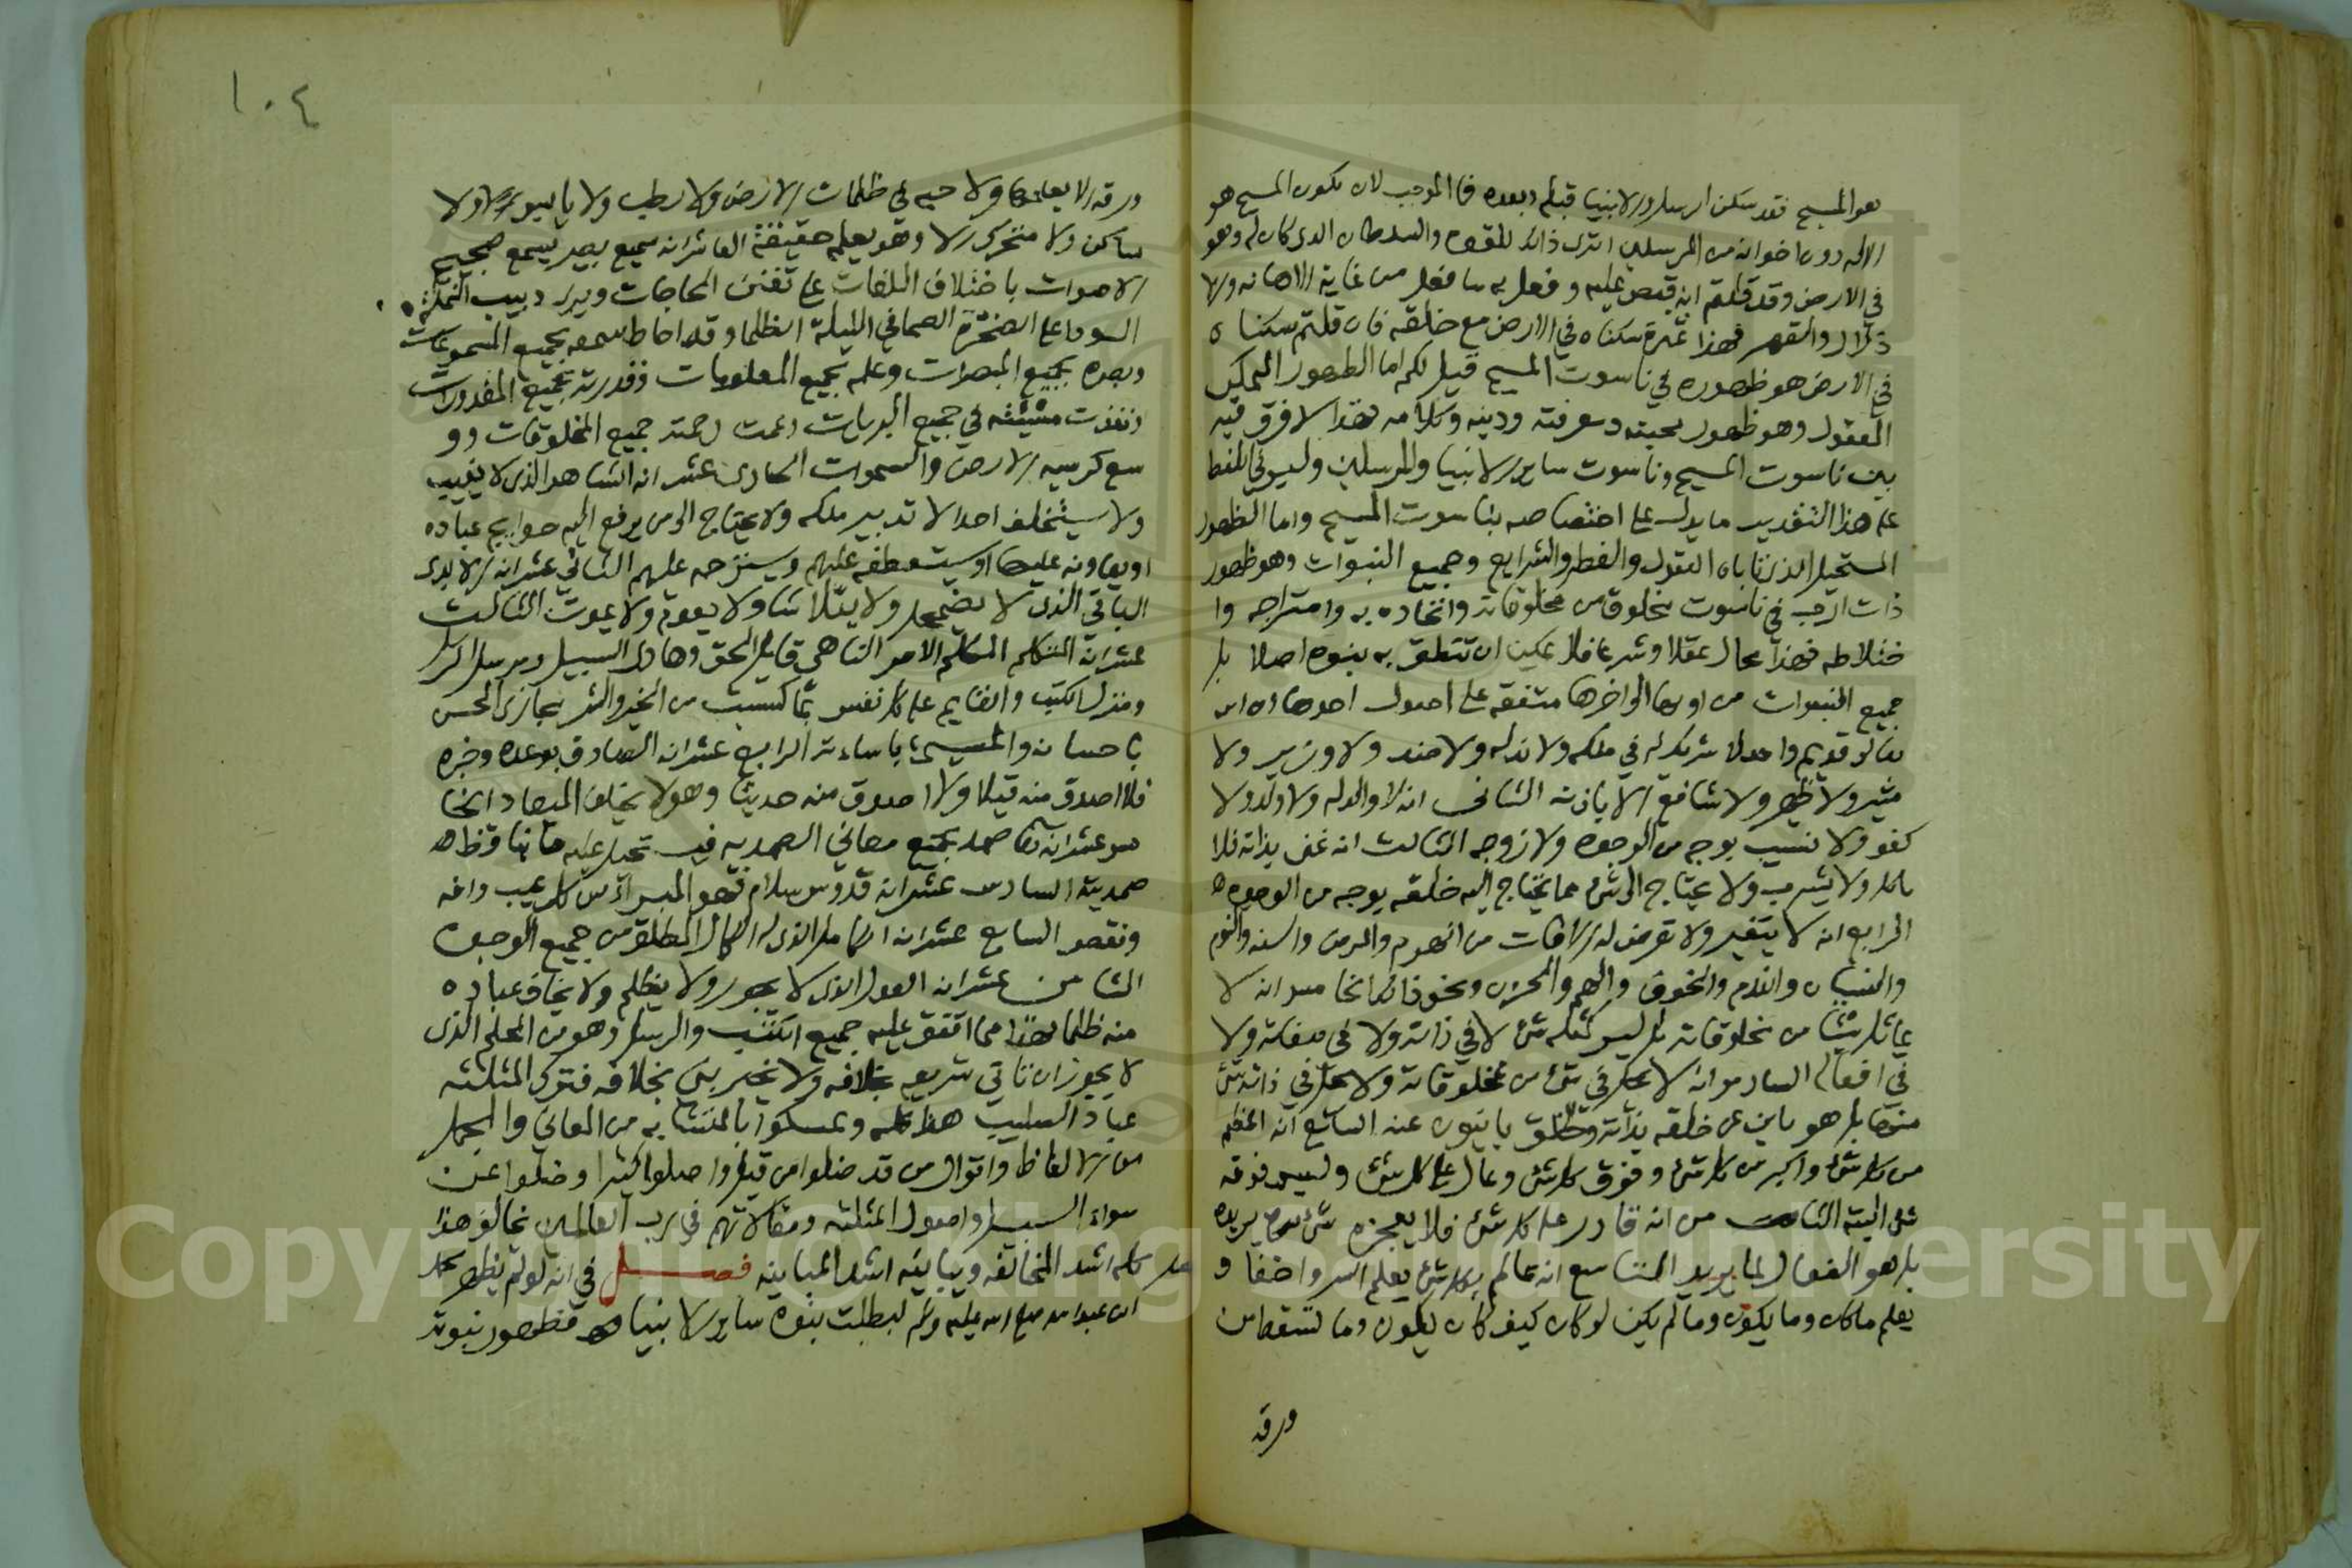 هو المسيح فقد سكن الرسل والانبيا قبله وبعده فما الموجب لان يكون المسيح هو
الاله دون اخوانه من المرسلين اترى ذلك للقوه والسلطان الذى كان له وهو
في الارض وقد قلتم انه قبض عليه وفعل به ما فعل من غاية الاهانه والا
ذلال والقهر فهذا ثمرة سكناه في الارض مع خلقه فان قلتم سكناه
في الارض هو ظهوره في ناسوت المسيح قيل لكم اما الظهور الممكن
المعقول وهو ظهور محبته ومعرفته ودينه وكلامه فهذا لا فرق فيه
بين ناسوت المسيح وناسوت ساير الانبيا والمرسلين وليس في اللفظ
على هذا التقدير ما يدل على اختصاصه بناسوت المسيح واما الظهور
المستحيل الذى تاباه العقول والفطر والشرايع وجميع النبوات وهو ظهور
ذات الرب في ناسوت مخلوق من مخلوقاته واتحاده به وامتزاجه وا
ختلاطه فهذا محال عقلا وشرعا فلا يمكن ان تنطق به نبوه اصلا بل
جميع النبوات من اولها الى اخرها متفقه على اصول احدها ان الله
تعالى قديم واحد لا شريك له في ملكه ولا ند له ولا ضد ولا وزير ولا
مشير ولا ظهير ولا شافع الا باذنه الثانى انه لا والد له ولا ولد ولا
كفو ولا نسيب بوجه من الوجوه ولا زوجه الثالث انه غنى بذاته فلا
ياكل ولا يشرب ولا يحتاج الى شئ مما يحتاج اليه خلقه بوجه من الوجوه
الرابع انه لا يتغير ولا تعرض له الافات من الهرم والمرض والسنه والنوم
والنسيان والندم والخوف والهم والحزن ونحو ذلك الخامس انه لا
يماثل شيئا من مخلوقاته بل ليس كمثله شئ لا في ذاته ولا في صفاته ولا
في افعاله السادس انه لا يحل في شئ من مخلوقاته ولا يحل في ذاته شئ
منها بل هو باين عن خلقه بذاته والخلق باينون عنه السابع انه اعظم
من كل شئ واكبر من كل شئ وفوق كل شئ وعال على كل شئ وليس فوقه
شئ البته الثامن انه قادر على كل شئ فلا يعجزه شئ يريده
بل هو الفعال لما يريد التاسع انه عالم بكل شئ يعلم السر واخفا و
يعلم ما كان وما يكون وما لم يكن لو كان كيف كان يكون وما تسقط من
ورقه
١٠٤
ورقه الا يعلمها ولا حبه في ظلمات الارض ولا رطب ولا يابس ولا
ساكن ولا متحرك الا وهو يعلم حقيقته العاشر انه سميع بصير يسمع ضجيج
الاصوات باختلاف اللغات على تفنن الحاجات ويرى دبيب النملة
السودا على الصخرة الصما في الليلة الظلما وقد احاط سمعه بجميع المسموعات
وبصره بجميع المبصرات وعلمه بجميع المعلومات وقدرته بجميع المقدورات
ونفذت مشيئته في جميع البريات وعمت رحمته جميع المخلوقات وو
سع كرسيه الارض والسموات الحادى عشر انه الشاهد الذى لا يغيب
ولا يستخلف احدا لا تدبير ملكه ولا يحتاج الى من يرفع اليه حوايج عباده
او يعاونه عليها او يستعطفه عليهم ويسترحمه عليهم الثاني عشر انه الابدى
الباقي الذى لا يضمحل ولا يتلاشا ولا يعدم ولا يموت الثالث
عشر انه المتكلم المكلم الامر الناهي قايل الحق وهادى السبيل ومرسل الرسل
ومنزل الكتب والقايم على كل نفس بما كسبت من الخير والشر مجازى المحسن
باحسانه والمسئ باساءته الرابع عشر انه الصادق بوعده وخبره
فلا اصدق منه قيلا ولا اصدق منه حديثا وهو لا يخلف الميعاد الخا
مس عشر انه تعالى صمد بجميع معاني الصمديه فيستحيل عليه ما يناقض
صمديته السادس عشر انه قدوس سلام فهو المبرا من كل عيب وافه
ونقص السابع عشر انه الكامل الذى له الكمال المطلق من جميع الوجوه
الثامن عشر انه العدل الذى لا يجور ولا يظلم ولا يخاف عباده
منه ظلما فهذا مما اتفق عليه جميع الكتب والرسل وهو من المحكم الذى
لا يجوز ان تاتي شريعه بخلافه ولا يخبر نبى بخلافه فترك المثلثه
عباد الصليب هذا كله وتمسكوا بالمتشابه من المعاني والمجمل
من الالفاظ واقوال من قد ضلوا من قبل واضلوا كثيرا وضلوا عن
سواء السبيل واصول المثلثه ومقالاتهم في رب العالمين تخالف هذا
كله اشد المخالفه وتباينه اشد المباينه فصل في انه لو لم يظهر محمد
ابن عبد الله صلى الله عليه وسلم لبطلت نبوة ساير الانبيا فظهور نبوته